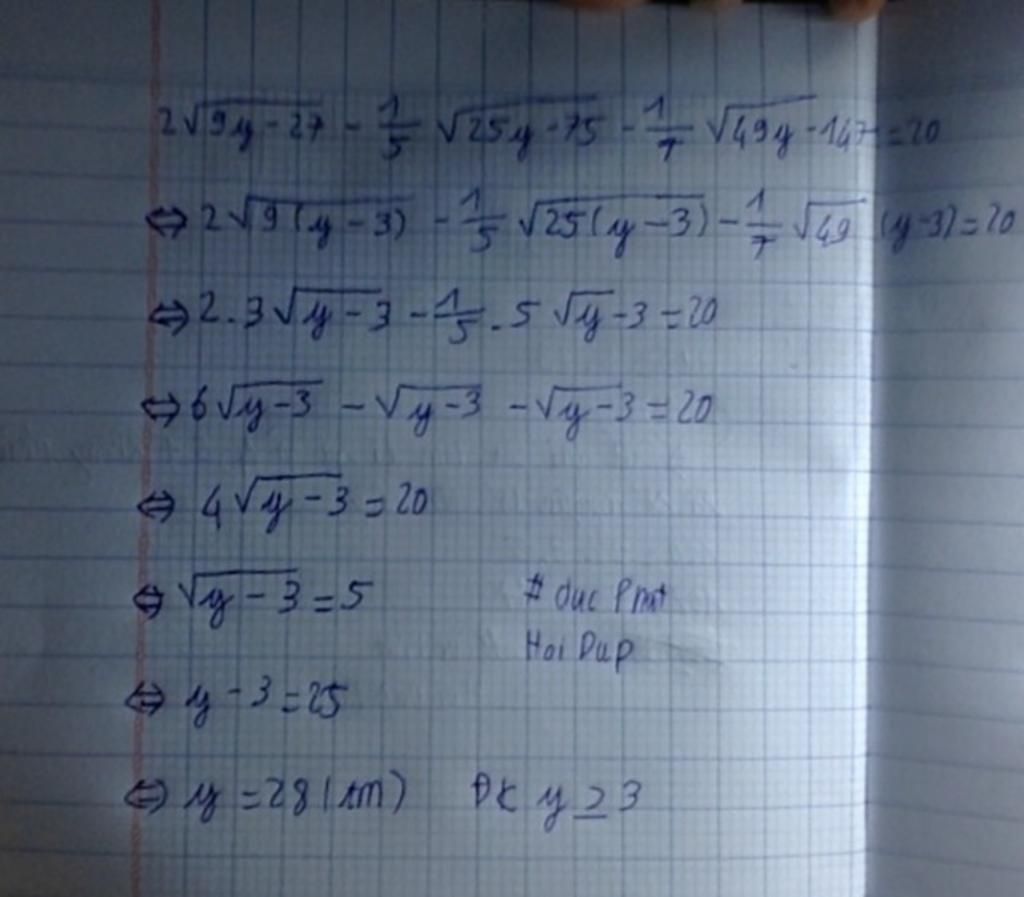 2√(9y-27) - 1/5 √(25y-75) - 1/7 √(49y-147) = 20
⇔ 2√(9(y-3)) - 1/5 √(25(y-3)) - 1/7 √49 (y-3) = 20
⇔ 2.3√(y-3) - 1/5 . 5 √y-3 = 20
⇔ 6√(y-3) - √(y-3) - √(y-3) = 20
⇔ 4√(y-3) = 20
⇔ √(y-3) = 5
# duc Pmt
Hoi Dap
⇔ y - 3 = 25
⇔ y = 28 (tm) ĐK y ≥ 3